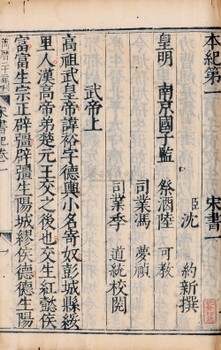 本紀第一　宋書一
臣沈約新撰
皇明南京國子監祭酒陸可教
司業馮夢禎
司業季道統校閱
武帝上
高祖武皇帝諱裕字德輿小名寄奴彭城縣綏
里人漢高帝弟楚元王交之後也交生紅懿侯
富富生宗正辟彊辟彊生陽城繆侯德德生陽
宋書卷一